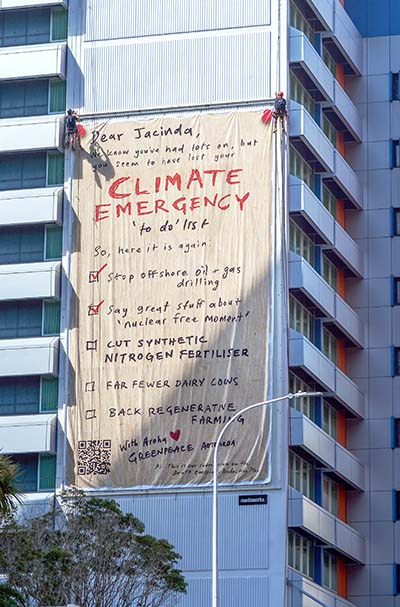 Dear Jacinda,
We know you've had lots on, but
you seem to have lost your
CLIMATE
EMERGENCY
'to do' list
So, here it is again:
Stop offshore oil + gas
drilling
Say great stuff about
'nuclear free moment'
CUT SYNTHETIC
NITROGEN FERTILISER
FAR FEWER DAIRY COWS
BACK REGENERATIVE
FARMING
With Aroha
GREENPEACE AOTEAROA
PS. This is our submission on the
Draft Emissions Reduction Plan